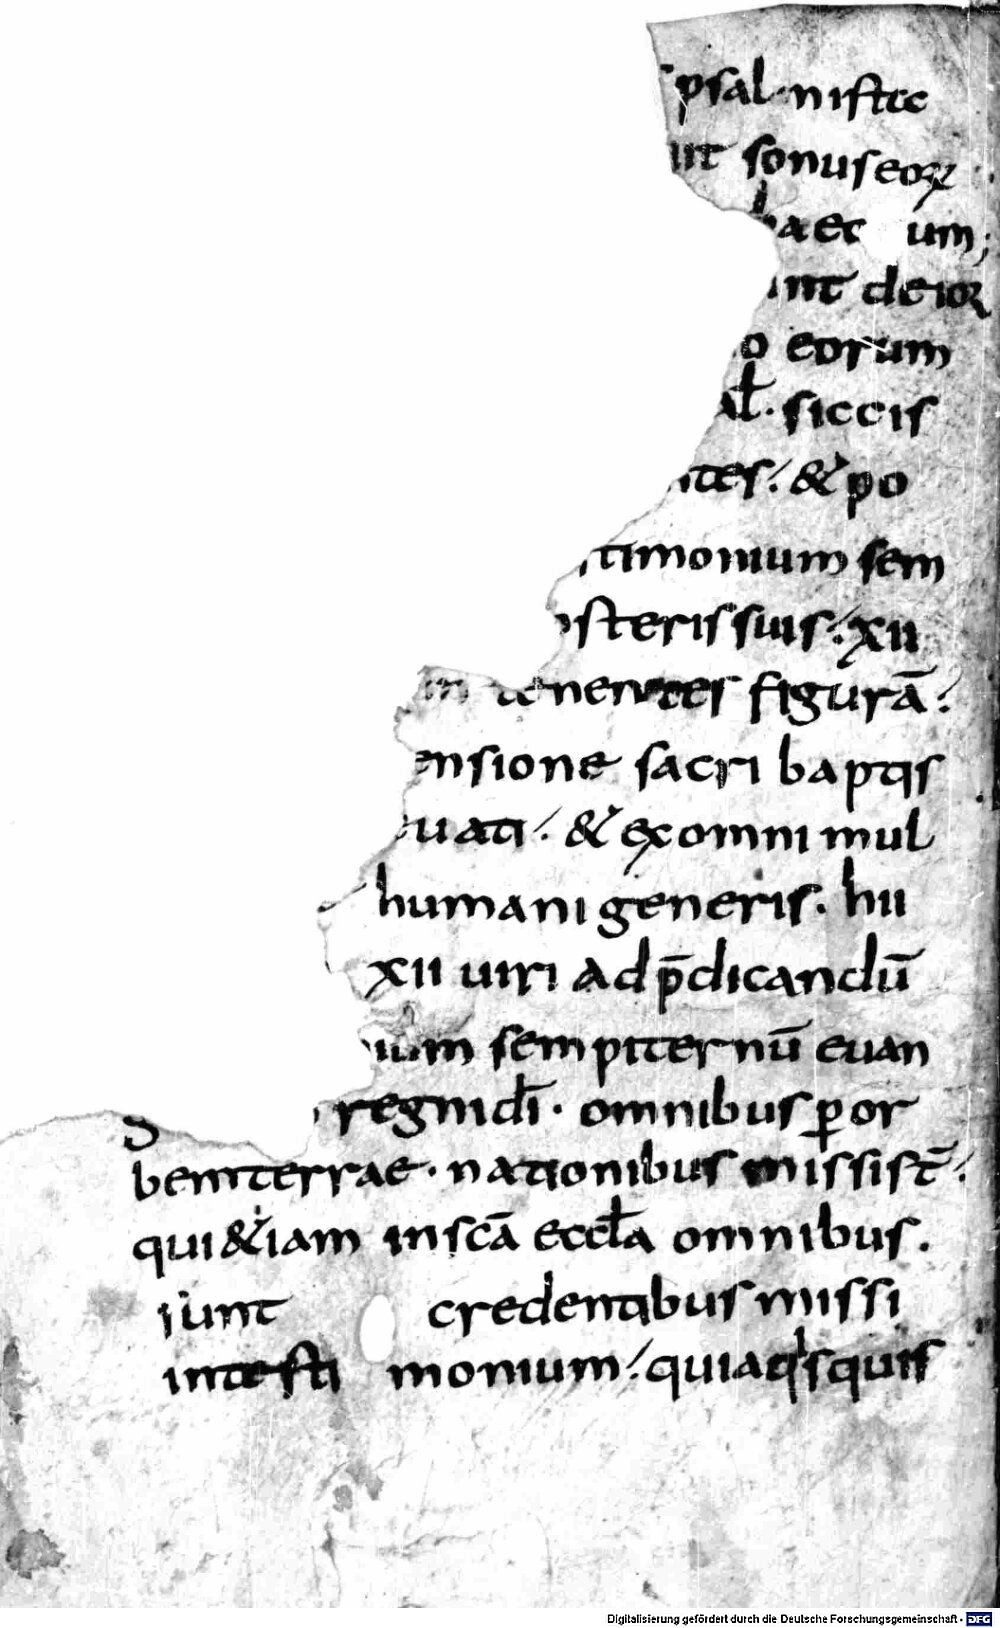 psal. nistec
ut sonus eoꝝ
haec um;
unt deioꝝ
o eorum
al̄. siccis
ntes. & po
timonium sem
osteris suis. xii
tenentes figurā.
ensione sacri baptis
uati. & ex omni mul
humani generis. hii
xii uiri ad p̄dicandū
ium sempiternū euan
g regni dī. omnibus ꝑ or
bem terrae. nationibus missi st̄.
qui &iam in scā eccl̄a omnibus.
sunt credentibus missi
in testi monium. quia quisquis